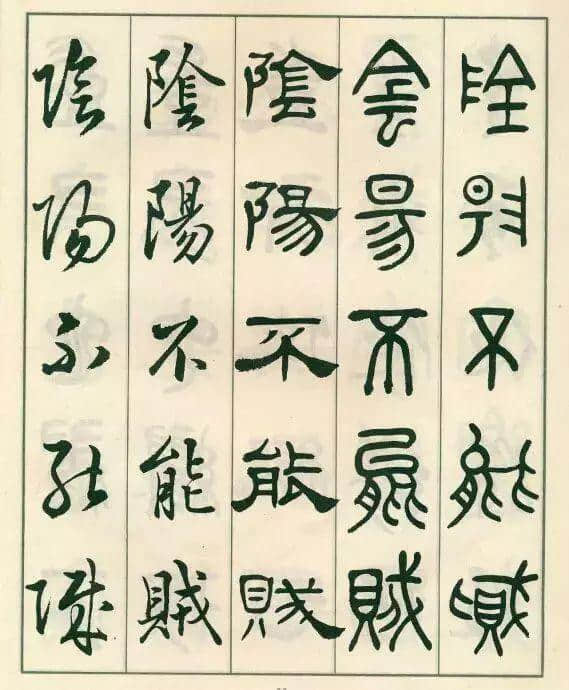 陰陽不能賊
陰陽不能賊
陰陽不能賊
陰陽不能賊
陰陽不能賊